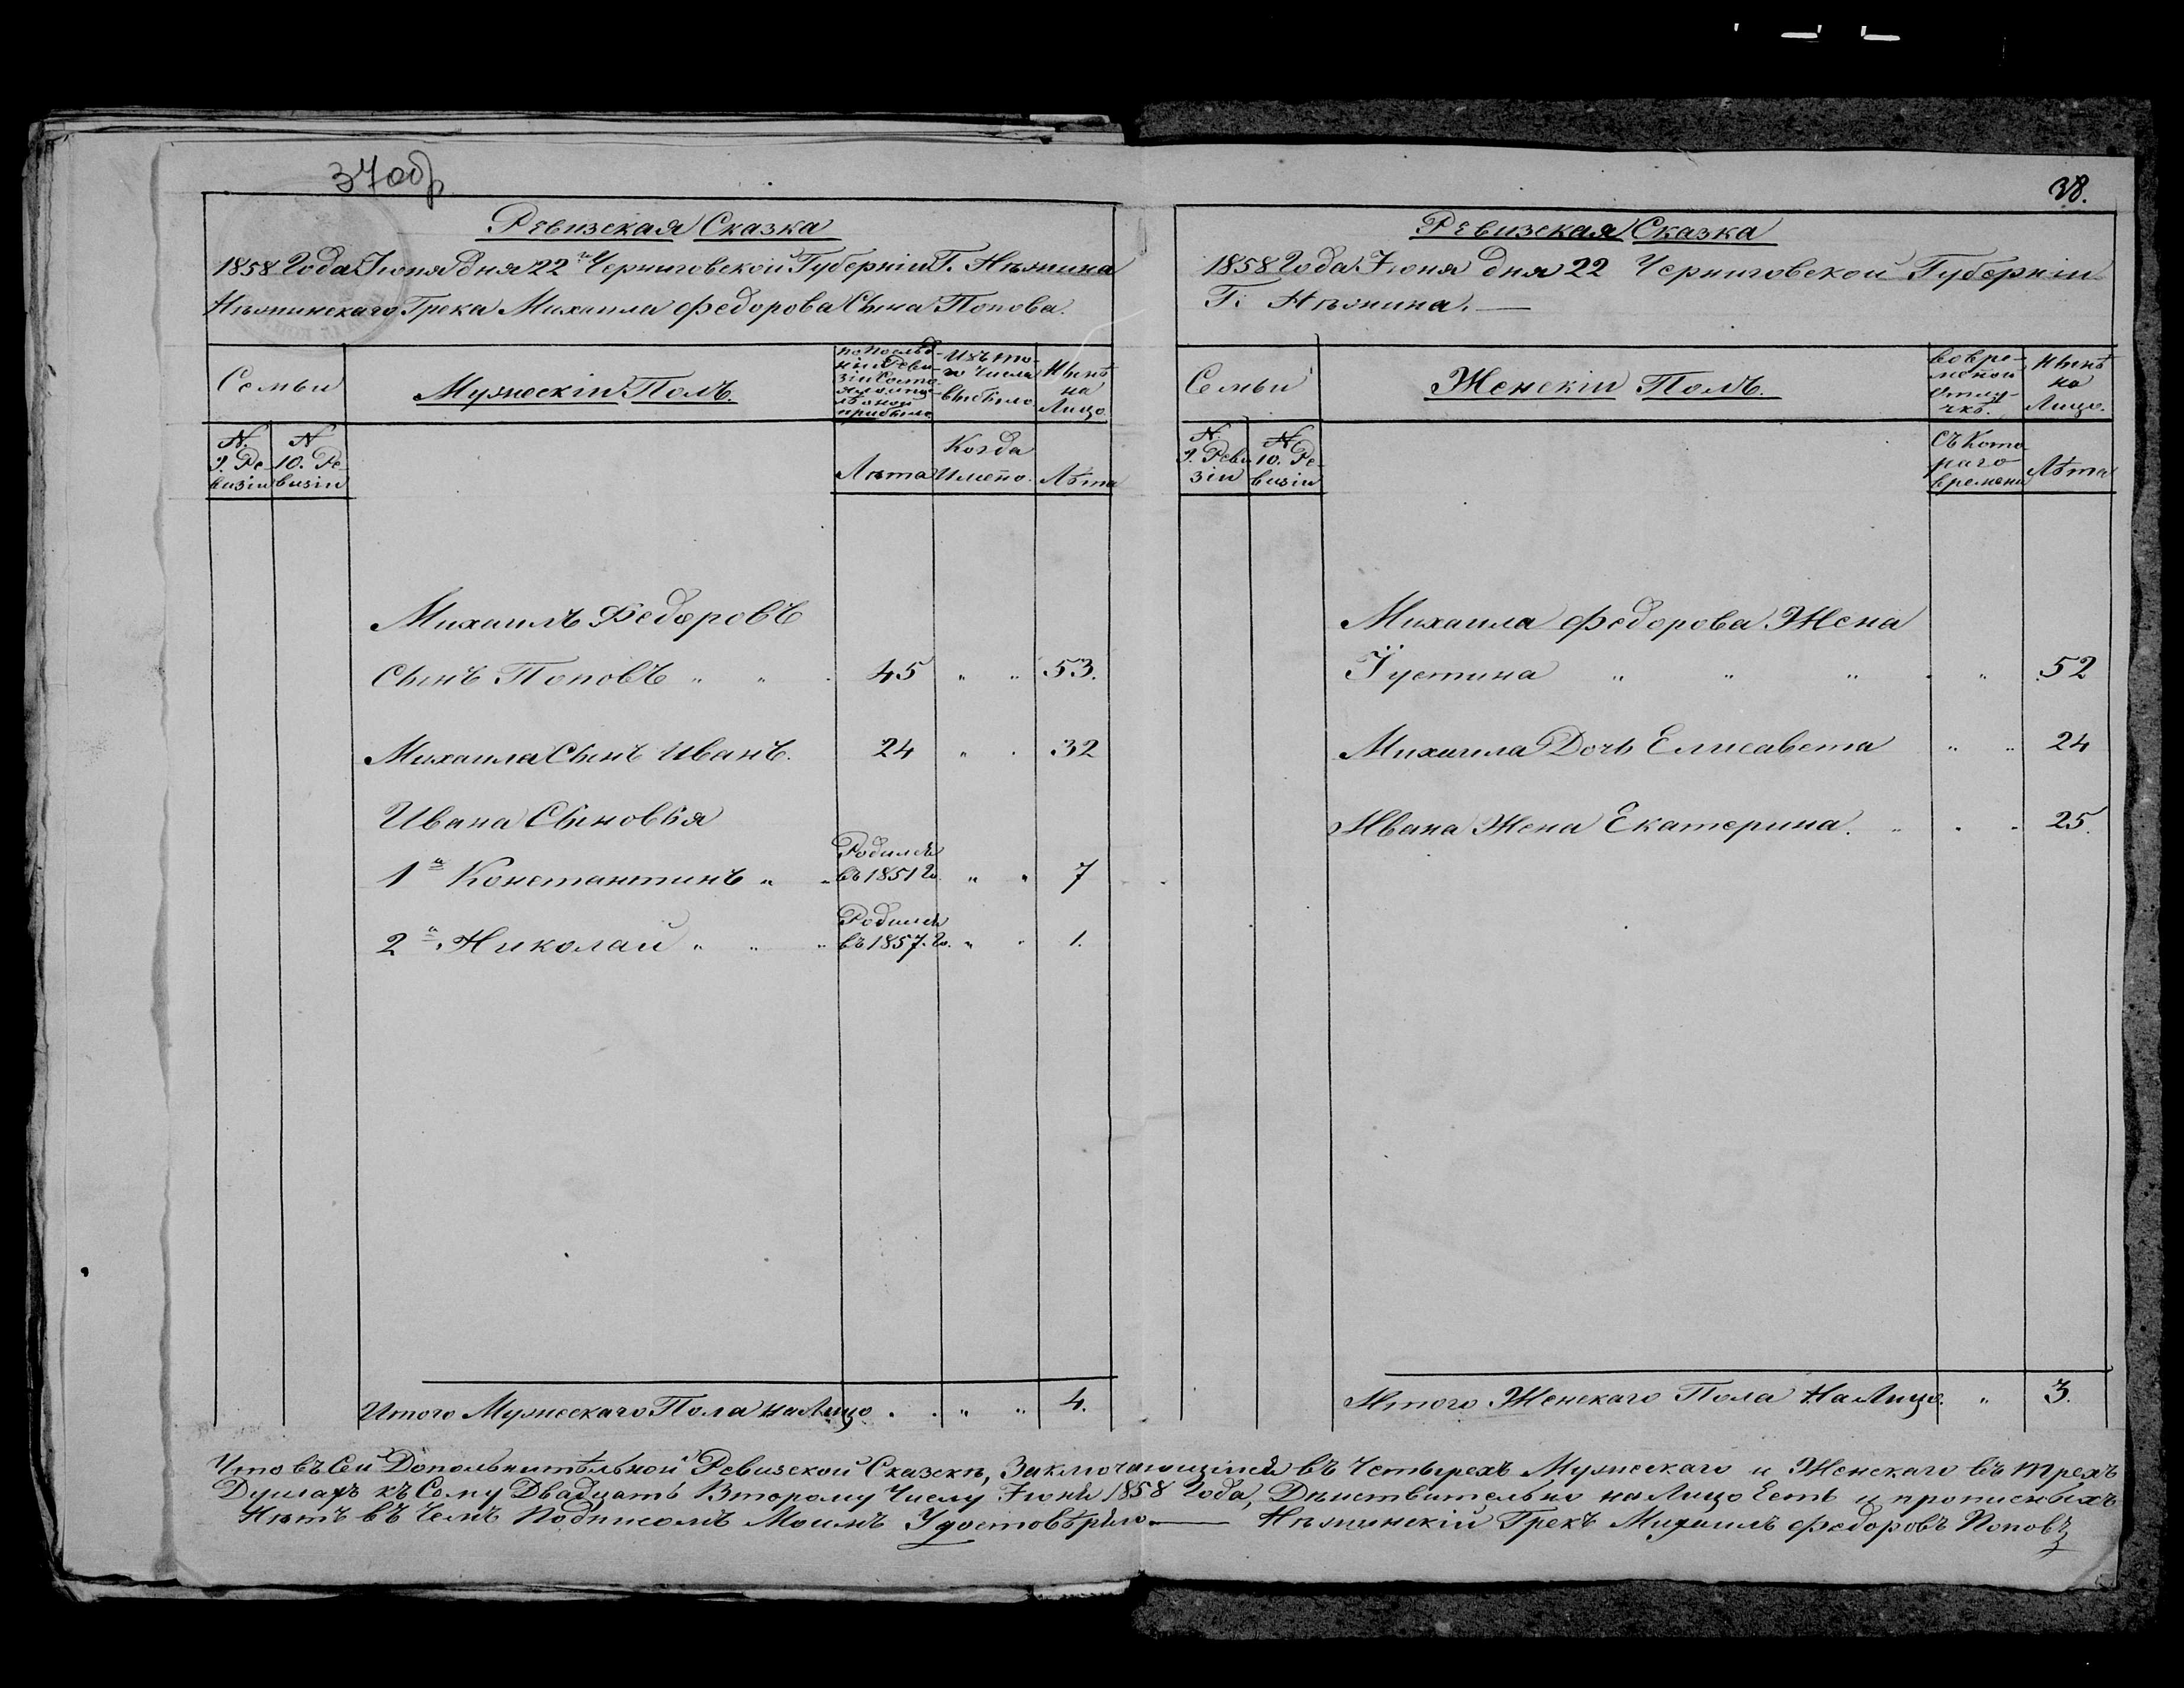 37 об
Ревизская Сказка
1858 Года Іюня дня 22 го Черниговской Губерніи Г. Нѣжина
Нѣжинскаго Грека Михаила Федорова Сына Попова.
Семьи
Мужескій Полъ.
Изъ то-
го Числа
выбыло
Нынѣ
на
Лицо
N.
9. Ре-
визіи
N
10. Ре-
визіи
Лѣта
Когда
Имено.
Лѣта
Михаилъ Федоровъ
Сынъ Поповъ " " . 45 " " 53.
Михаила Сынъ Иванъ. 24 " . 32
Ивана Сыновья
Родился
1й Константинъ " " въ 1851 Го. " " 7
Родился
2й Николай " " " въ 1857. Го. " " 1.
Итого Мужескаго Пола на Лицо . . " " 4.
38.
Ревизская Сказка
1858 Года Іюня дня 22 Черниговской Губерніи
Г. Нѣжина.
Семьи
Женскій Полъ.
Во вре-
меной
Отлу-
чкѣ.
Нынѣ
на
Лицо.
N.
9. Реви-
зіи
N
10. Ре-
визіи
Съ Кото
раго
времени
Лѣта
Михаила Федорова Жена
Іустина " " " . " 52
Михаила Дочь Елисавета " " 24
Ивана Жена Екатерина. " " " 25.
Итого Женскаго Пола На Лицо. " 3.
Что въ Сей Дополнительной Ревизской Сказкѣ, Заключающійся въ Четырехъ Мужескаго и Женскаго въ трехъ
Душахъ къ Сему Двадцать Второму Числу Іюня 1858 Года, Дѣйствительно на Лицо Есть и прописныхъ
Нѣтъ въ Чемъ Подписомъ Моимъ Удостовѣряю — Нѣжинскій Грекъ Михаилъ Федоровъ Поповъ